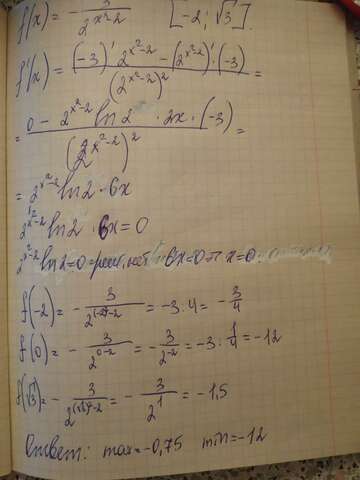 f(x) = - 3/2^(x²-2) [-2; √3].
f'(x) = ((-3)' · 2^(x²-2) - (2^(x²-2))' · (-3))/(2^(x²-2))² =
= (0 - 2^(x²-2) ln2 · 2x · (-3))/(2^(x²-2))² =
= 2^(x²-2) ln2 · 6x
2^(x²-2) ln2 · 6x = 0
2^(x²-2) ln2 = 0 = реш. нет 6x = 0 => x = 0.
f(-2) = - 3/2^((-2)²-2) = -3 : 4 = - 3/4
f(0) = - 3/2^(0-2) = - 3/2^(-2) = -3 : 1/4 = -12
f(√3) = - 3/2^((√3)²-2) = - 3/2^1 = -1,5
Ответ: max = -0,75 min = -12